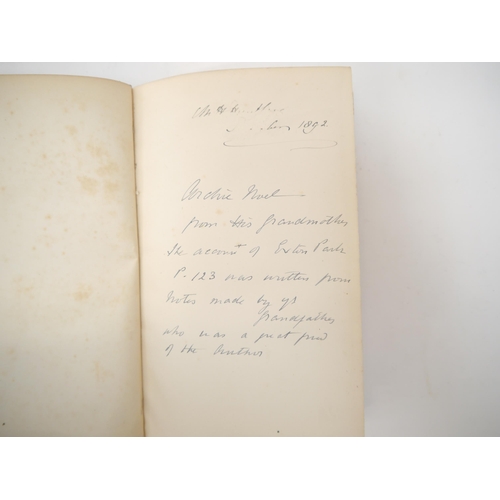 1892.
Archie Noel
from His Grandmother
The account of Exton Park
P. 123 was written from
Notes made by yr
Grandfather
who was a great frind
of the Author